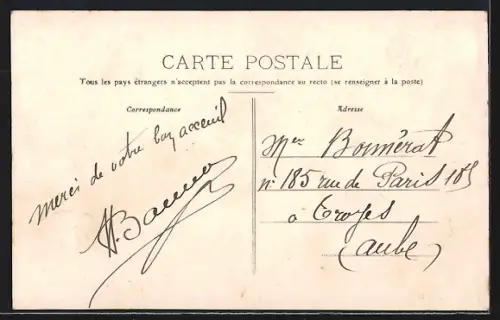 CARTE POSTALE
Tous les pays étrangers n'acceptent pas la correspondance au recto (se renseigner à la poste)
Correspondance
merci de votre bon acceuil
Adresse
Bonnérat
n° 185 rue de Paris 185
à Troyes
(aube)